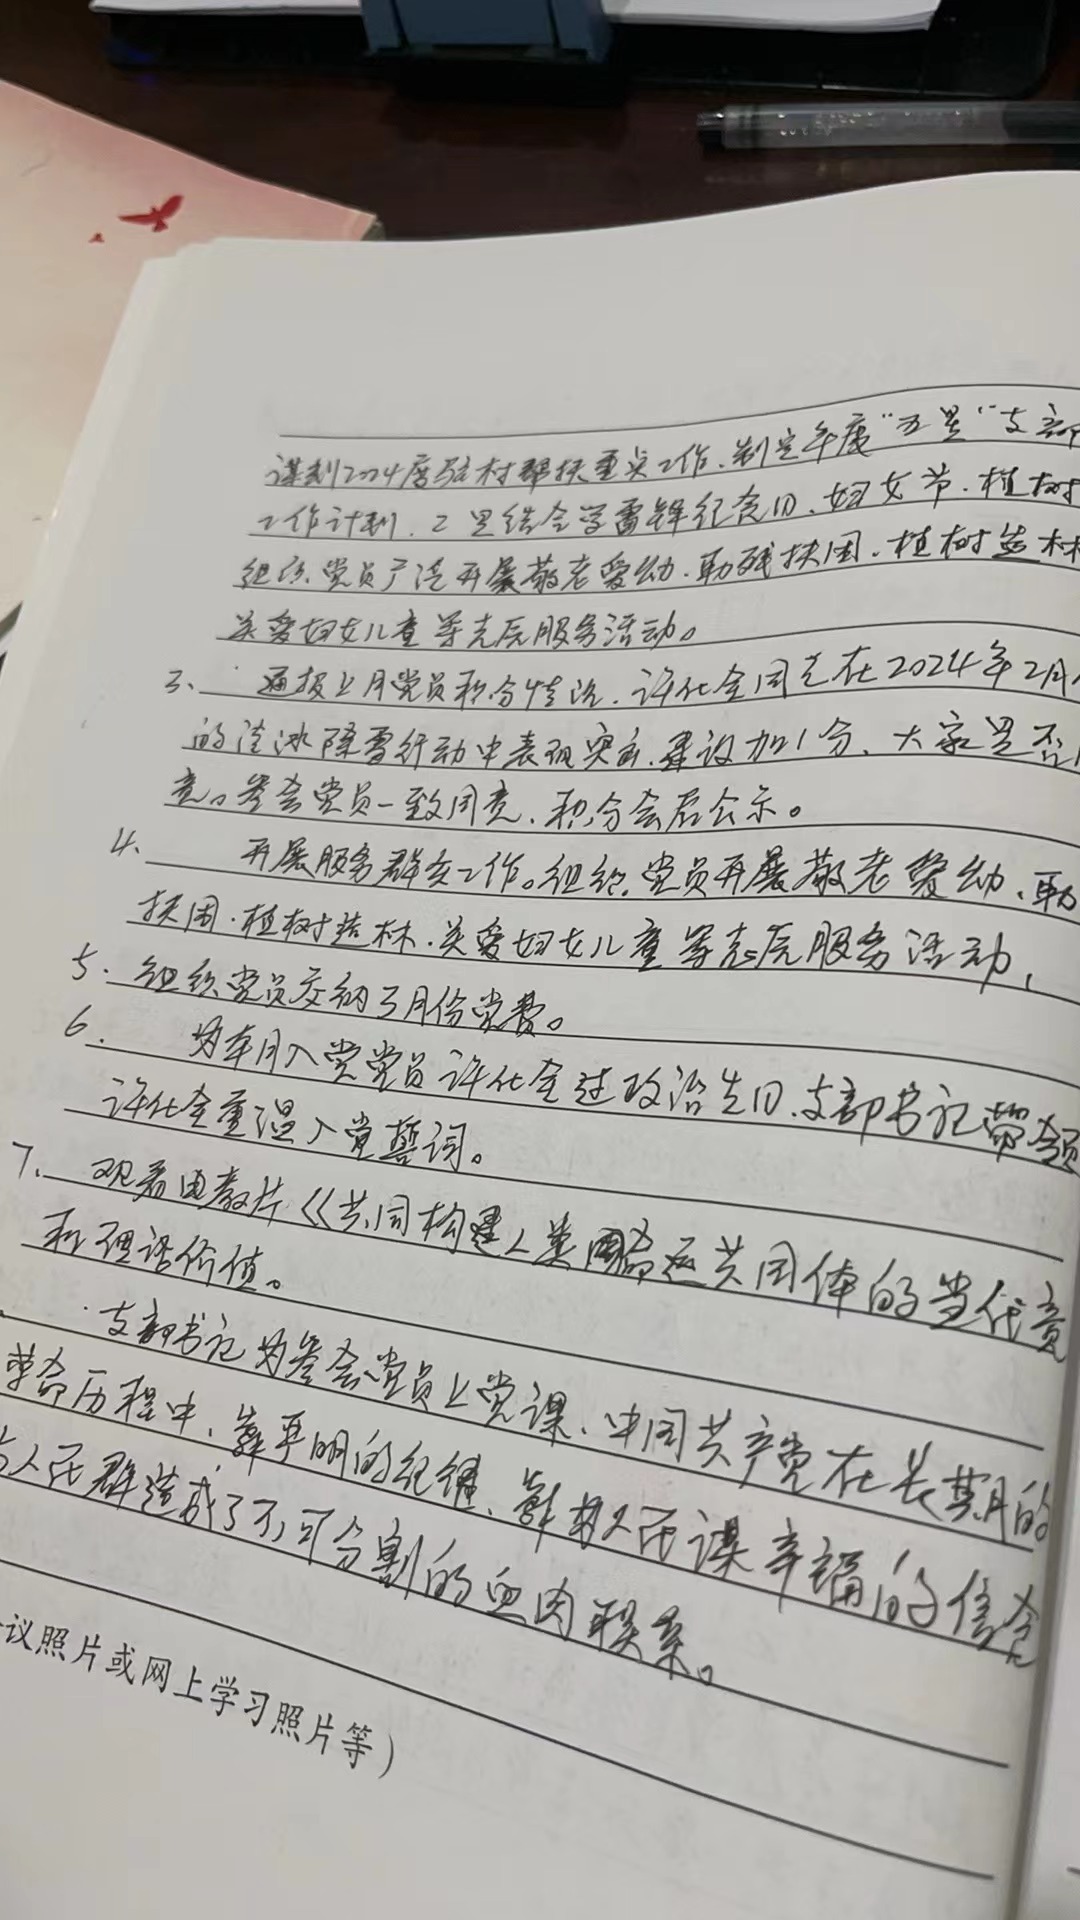 谋划2024度驻村帮扶重点工作,制定年度“五星”支部
工作计划,2是结合学雷锋纪念日、妇女节、植树
组织党员广泛开展敬老爱幼、助残扶困、植树造林
关爱妇女儿童等志愿服务活动。
3、通报上月党员积分情况,许化全同志在2024年2月
的清冰除雪行动中表现突出,建议加1分、大家是否同
意。参会党员一致同意,积分会后公示。
4、开展服务群众工作。组织党员开展敬老爱幼、助
扶困、植树造林、关爱妇女儿童等志愿服务活动,
5、组织党员交纳3月份党费。
6、为本月入党党员许化全过政治生日、支部书记带领
许化全重温入党誓词。
7、观看电教片《共同构建人类命运共同体的当代意
和理论价值。
支部书记为参会党员上党课、中国共产党在长期的
革命历程中,靠严明的纪律、靠为人民谋幸福的信念
与人民群造成了不可分割的血肉联系。
议照片或网上学习照片等)